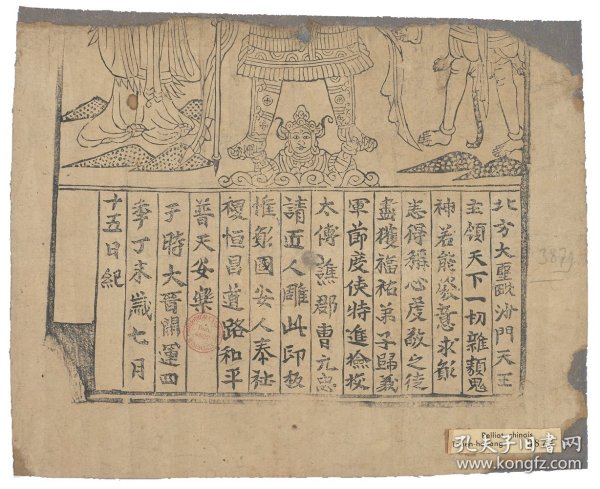 北方大聖毗沙門天王
主領天下一切雜類鬼
神若能發意求願
悉得稱心虔敬之徒
盡獲福祐弟子歸義
軍節度使特進檢校
太傅譙郡曹元忠
請匠人雕此印板
惟願國安人泰社
稷恒昌道路和平
普天安樂
于時大晉開運四
年丁未歲七月
十五日紀
3879
Pelliot chinois
孔夫子旧书网
www.kongfz.com